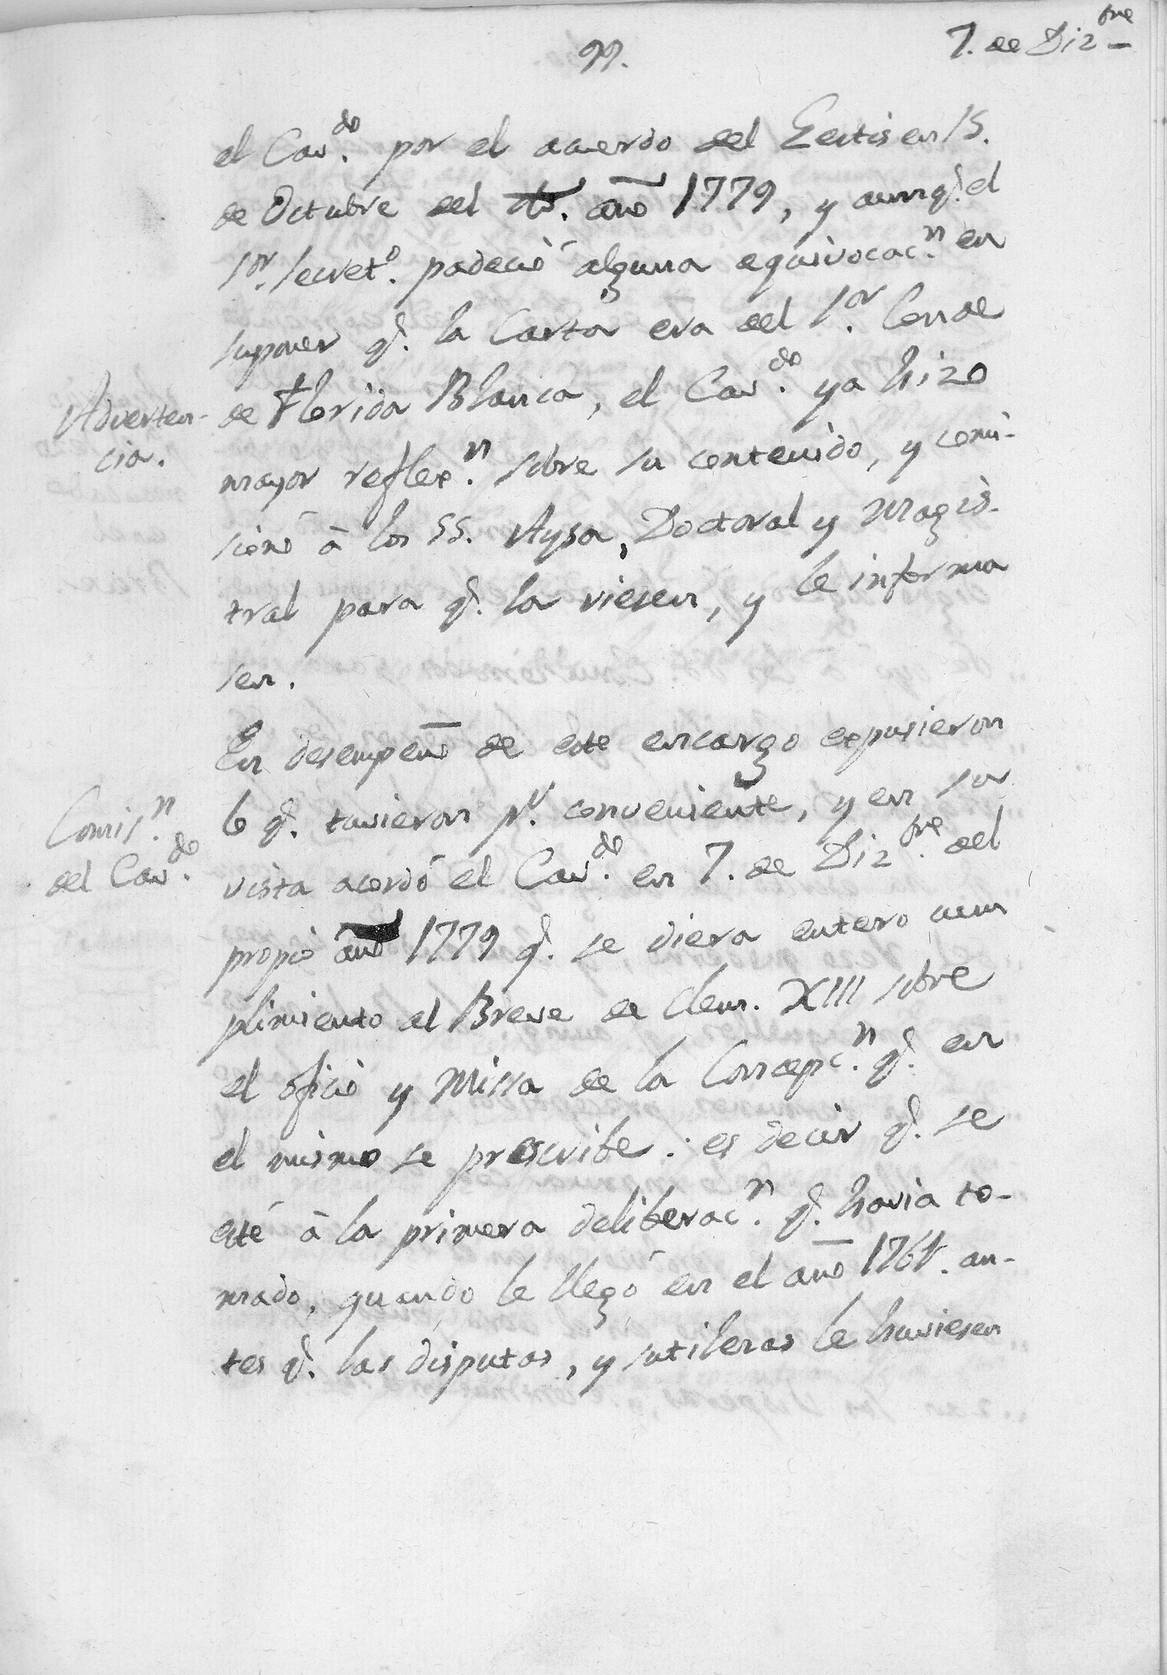 99.
7. de Diz.bre
el Cav.do por el acuerdo del Gestis en 15.
de Octubre del año 1779, y aunq.e el
S.or Secret.o padeciò alguna equivocac.n en
suponer q.e la Carta era del S.or Conde
de Florida Blanca, el Cav.do ya hizo
Adverten-
cia.
mayor reflex.n sobre su contenido, y comi-
sionò à los SS. Aysa, Doctoral y Magis-
tral para q.e la viesen, y le informa
sen.
En desempeño de este encargo expusieron
lo q.e tuvieron p.r conveniente, y en su
Comis.n
del Cav.do
vista acordò el Cav.do en 7. de Diz.bre del
propio año 1779 q.e se diera entero cum
plimiento al Breve de Clem. XIII sobre
el oficio y Missa de la Concepc.n q.e en
el mismo se prescribe: es decir q.e se
esté à la primera deliberac.n q.e havia to-
mado, quando le llegó en el año 1761. an-
tes q.e las disputas, y sutilezas le huviesen